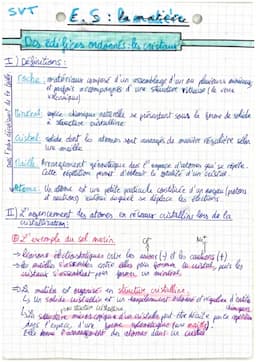 SVT
E.S : la matière
Des édifices ordonnés : les cristaux
I) Définitions :
Roche : matériaux composé d'un assemblage d'un ou plusieurs minéraux,
et parfois accompagnés d'une structure vitreuse (le verre
volcanique)
Minéral : espèce chimique naturelle se présentant sous la forme de solide
à structure cristalline.
Cristal : solide dont les atomes sont arrangés de manière régulière selon
une maille.
Maille : Arrangement géométrique dans l'espace d'atomes qui se répète.
Cette répétition permet d'obtenir la totalité d'un cristal.
Atome : Un atome est une petite particule constitué d'un noyau (protons
et neutrons) autour duquel se déplace les électrons
dans l'ordre décroissant de la taille
II) L'agencement des atomes en réseaux cristallins lors de la
cristallisation :
① L'exemple du sel marin
Cl⁻ Na⁺
→ liaisons électrostatiques entre les anions (-) et les cations (+)
→ les mailles s'assemblent entre elles pour former un cristal, puis les
cristaux s'assemblent pour former un minéral.
⇒ La matière est organisée en structure cristalline.
↳ Un solide cristallin est un empilement ordonné et régulier d'entités
chimiques
↳ La structure microscopique d'un cristal peut être décrite par la répétition
dans l'espace d'une forme géométrique (une maille).
Elle forme l'arrangement des atomes dans un cristal